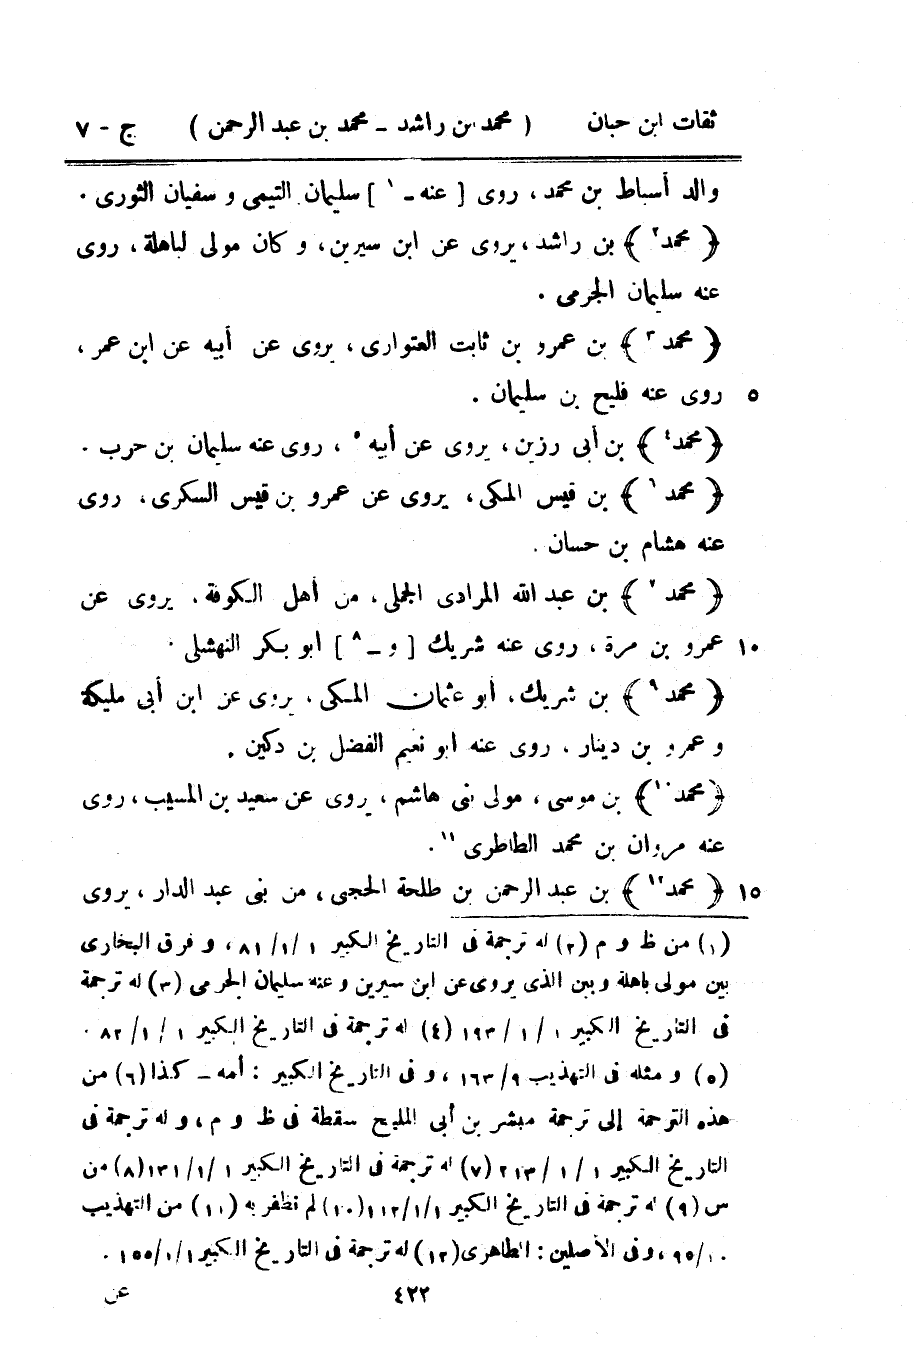 ثقات ابن حبان ( محمد بن راشد ـ محمد بن عبد الرحمن ) ج - ٧
والد أسباط بن محمد، روى [ عنه ـ ١ ] سليمان التيمى و سفيان الثورى .
﴿ محمد ٢ ﴾ بن راشد، يروى عن ابن سيرين، و كان مولى لباهلة، روى
عنه سليمان الجرمى .
﴿ محمد ٣ ﴾ بن عمرو بن ثابت العتوارى، يروى عن أبيه عن ابن عمر،
٥ روى عنه فليح بن سليمان .
﴿ محمد ٤ ﴾ بن أبى رزين، يروى عن أبيه ٥ ، روى عنه سليمان بن حرب .
﴿ محمد ٦ ﴾ بن قيس المكى، يروى عن عمرو بن قيس السكرى، روى
عنه هشام بن حسان .
﴿ محمد ٧ ﴾ بن عبد الله المرادى الجملى، من أهل الكوفة، يروى عن
١٠ عمرو بن مرة، روى عنه شريك [ و ـ ٨ ] ابو بكر النهشلى .
﴿ محمد ٩ ﴾ بن شريك، أبو عثمان المكى، يروى عن ابن أبى مليكة
و عمرو بن دينار، روى عنه ابو نعيم الفضل بن دكين .
﴿ محمد ١٠ ﴾ بن موسى، مولى بنى هاشم، يروى عن سعيد بن المسيب، روى
عنه مروان بن محمد الطاطرى ١١ .
١٥ ﴿ محمد ١٢ ﴾ بن عبد الرحمن بن طلحة الحجبى، من بنى عبد الدار، يروى
(١) من ظ و م (٢) له ترجمة فى التاريخ الكبير ١ /١/ ٨١، و فرق البخارى
بين مولى باهلة و بين الذى يروى عن ابن سيرين و عنه سليمان الجرمى (٣) له ترجمة
فى التاريخ الكبير ١ /١/ ١٩٣ (٤) له ترجمة فى التاريخ الكبير ١ /١/ ٨٢ .
(٥) و مثله فى التهذيب ٩/ ١٦٣، و فى التاريخ الكبير : أمه ـ كذا (٦) من
هذه الترجمة إلى ترجمة مبشر بن أبي المليح سقطة فى ظ و م، و له ترجمة فى
التاريخ الكبير ١ /١/ ٢١٣ (٧) له ترجمة فى التاريخ الكبير ١ /١/ ١٣١ (٨) من
س (٩) له ترجمة فى التاريخ الكبير ١/١/ ١١٢ (١٠) لم نظفر به (١١) من التهذيب
١٠/ ٩٥، و فى الأصلين : الظاهرى (١٢) له ترجمة فى التاريخ الكبير ١/١/ ١٥٥ .
٤٢٢ عن